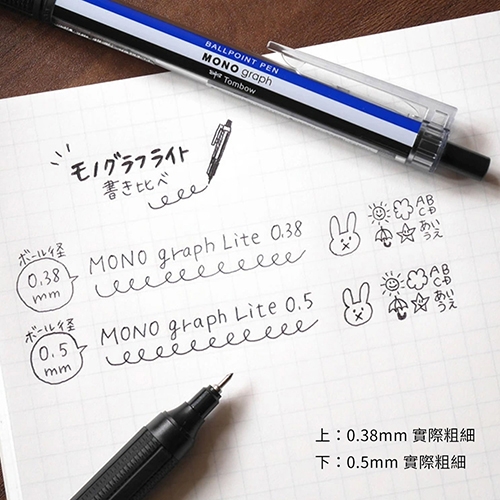 BALLPOINT PEN
MONO graph
Tombow
モノグラフライト
書き比べ
ボール径
0.38
mm
MONO graph Lite 0.38
AB
CD
あい
うえ
ボール径
0.5
mm
MONO graph Lite 0.5
AB
CD
あい
うえ
上：0.38mm 實際粗細
下：0.5mm 實際粗細